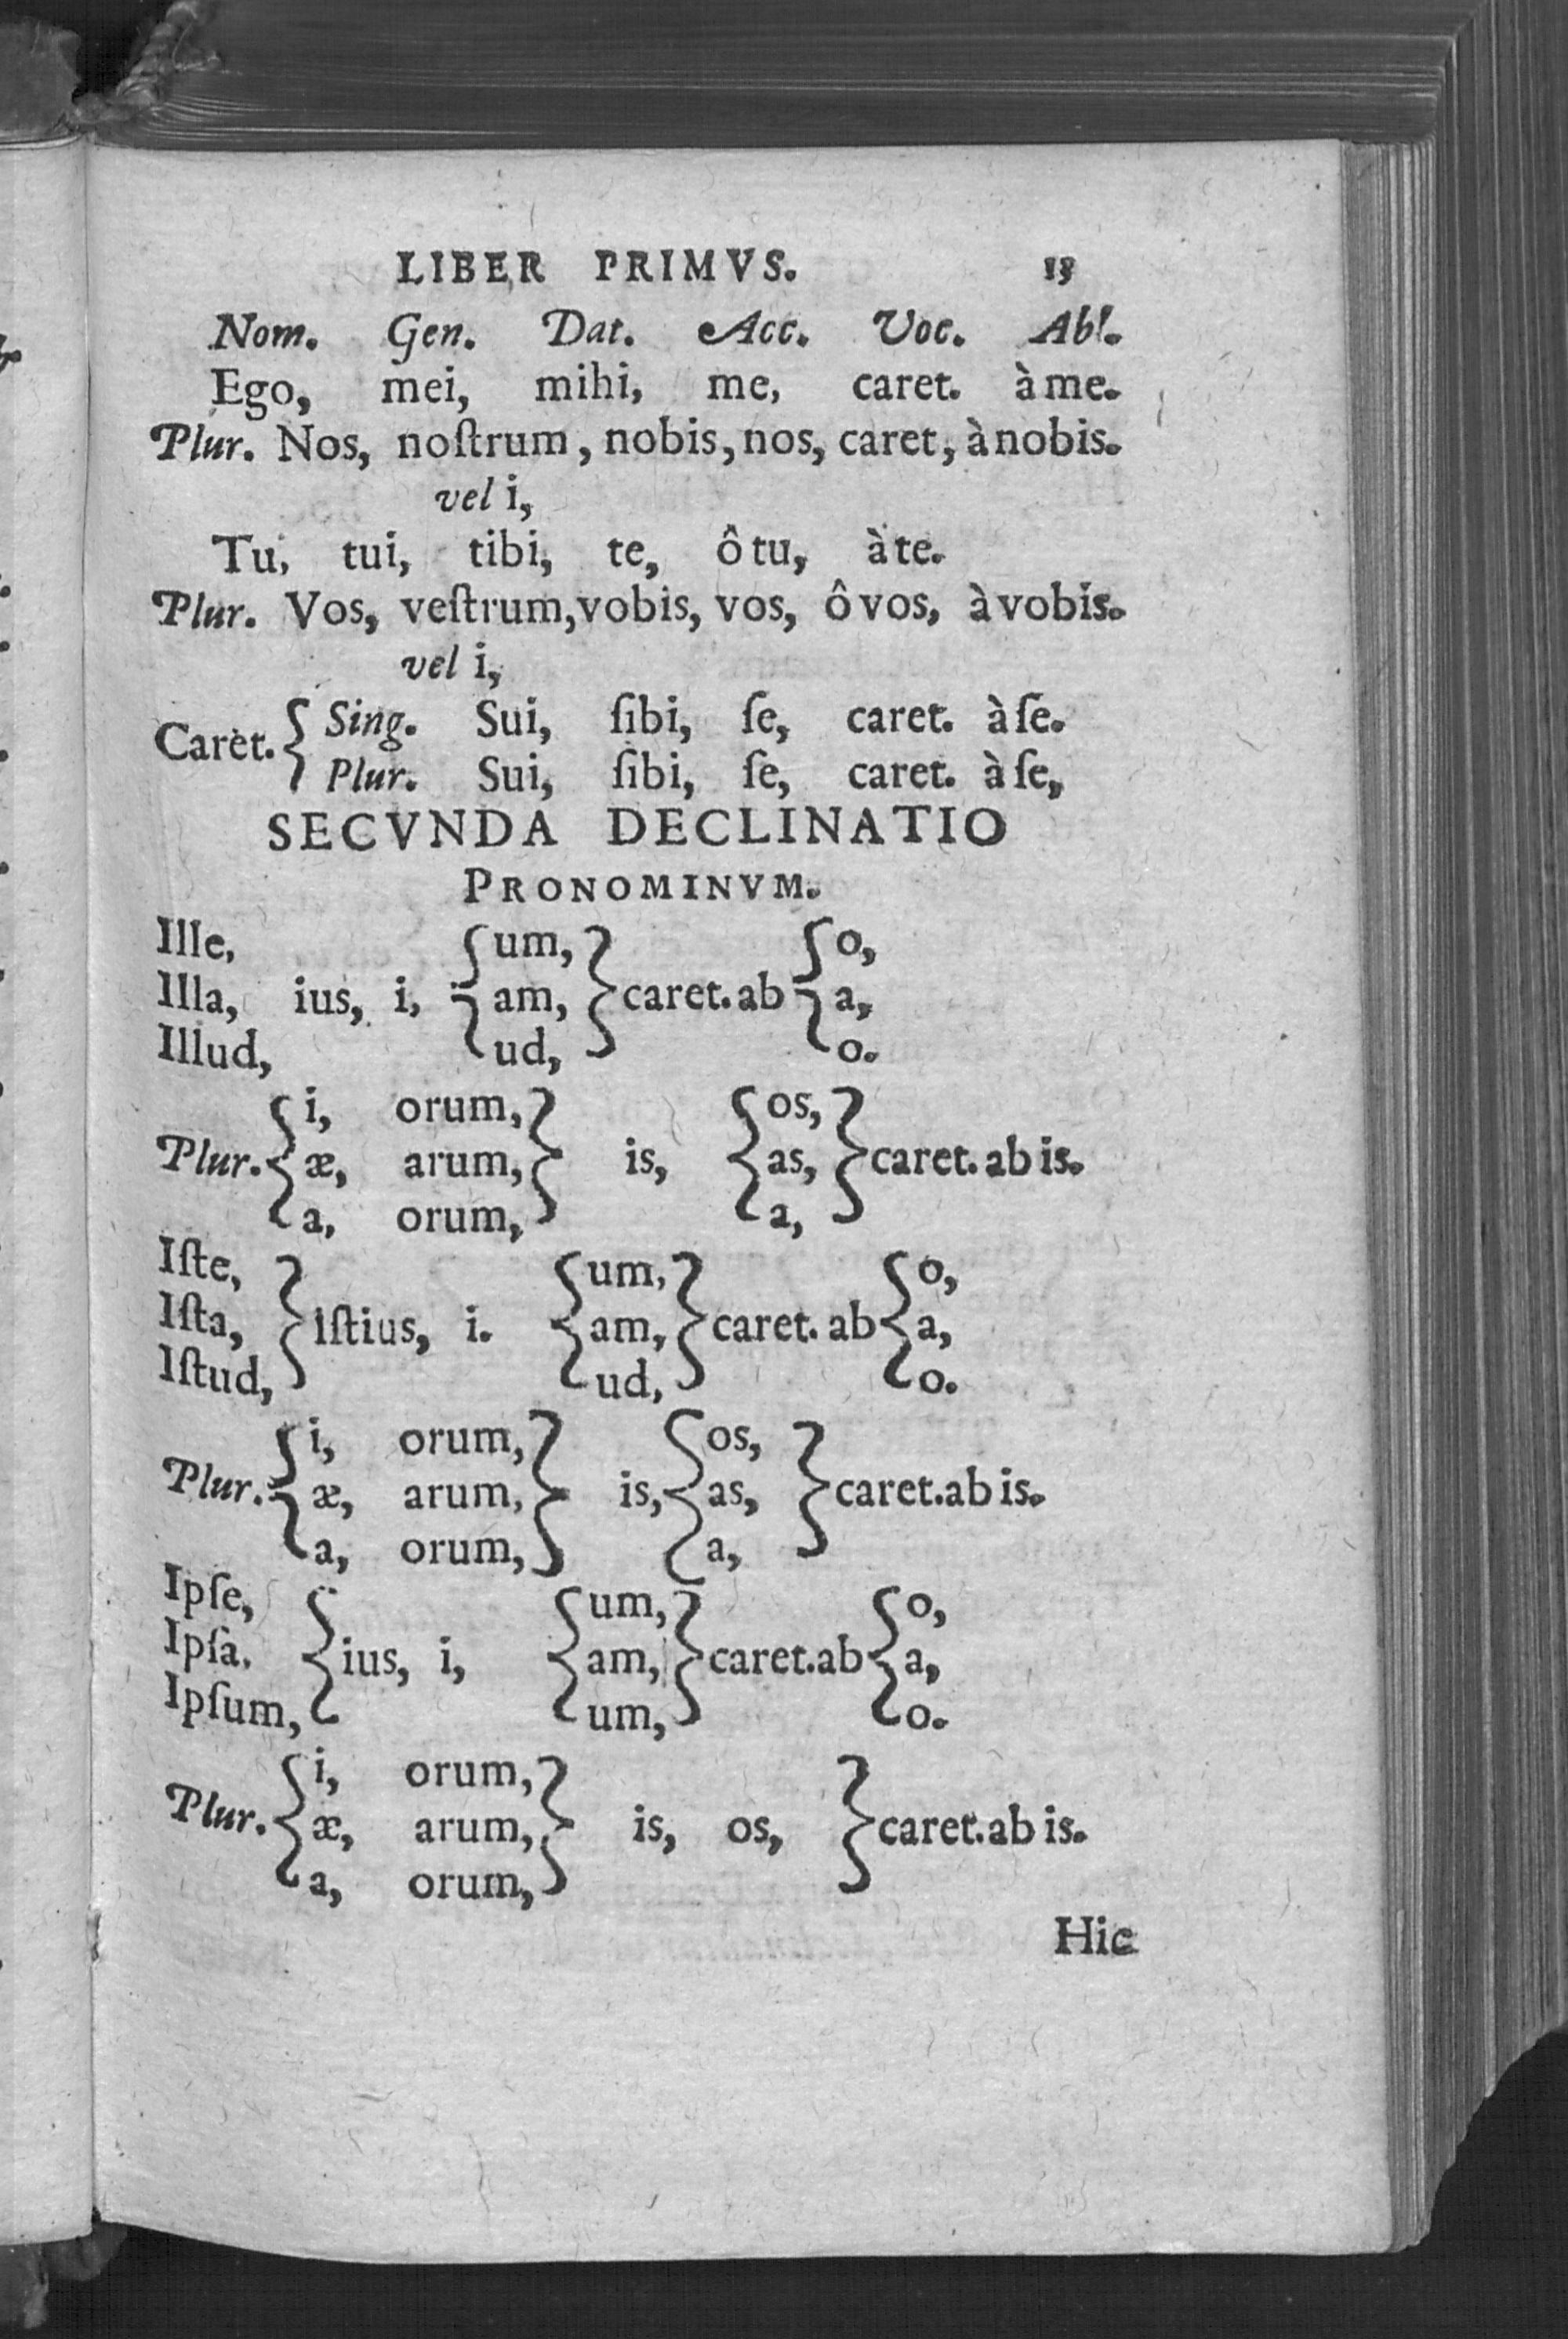 LIBER PRIMVS. 13
Nom. Gen. Dat. Acc. Voc. Abl.
Ego, mei, mihi, me, caret. à me.
Plur. Nos, noſtrum, nobis, nos, caret, à nobis.
vel i,
Tu, tui, tibi, te, ô tu, à te.
Plur. Vos, veſtrum, vobis, vos, ô vos, à vobis.
vel i,
Sing. Sui, ſibi, ſe, caret. à ſe.
Caret.
Plur. Sui, ſibi, ſe, caret. à ſe,
SECVNDA DECLINATIO
PRONOMINVM.
Ille, um, o,
Illa, ius, i, am, caret. ab a,
Illud, ud, o.
i, orum, os,
Plur. æ, arum, is, as, caret. ab is.
a, orum, a,
Iſte, um, o,
Iſta, iſtius, i. am, caret. ab a,
Iſtud, ud, o.
i, orum, os,
Plur. æ, arum, is, as, caret. ab is.
a, orum, a,
Ipſe, um, o,
Ipſa, ius, i, am, caret. ab a,
Ipſum, um, o.
i, orum,
Plur. æ, arum, is, os, caret. ab is.
a, orum,
Hic